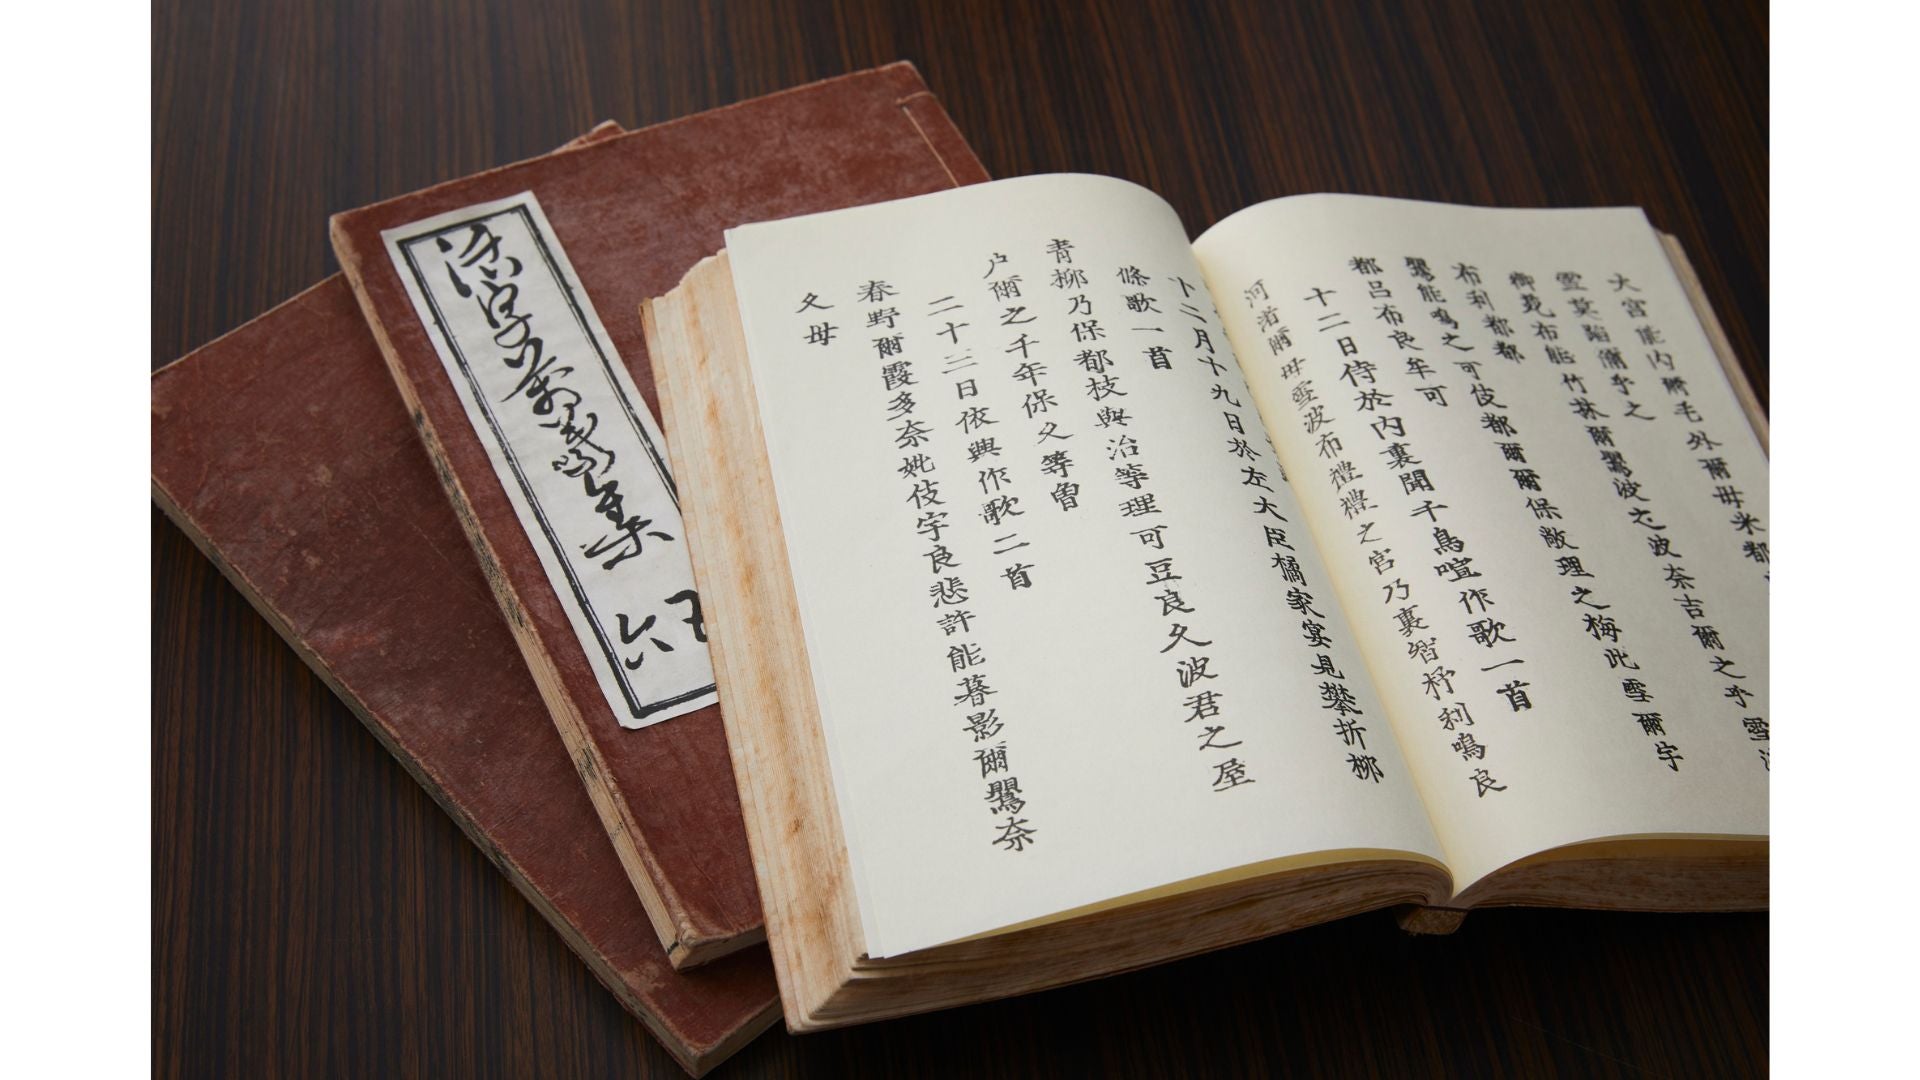 活字萬葉集
五
六
大宮能内爾毛外爾母米都
雪莫蹈禰乎之
御苑布能竹林爾鸎波之波奈吉爾之乎雪波
布利都都
鸎能鳴之可伎都爾爾保敝理之梅此雪爾宇
都呂布良牟可
十二日侍於内裏聞千鳥喧作歌一首
河渚爾母雪波布禮禮之宮乃裏智杼利鳴良
二月十九日於左大臣橘家宴見攀折柳
條歌一首
青柳乃保都枝與治等理可豆良久波君之屋
戸爾之千年保久等曽
二十三日依興作歌二首
春野爾霞多奈妣伎宇良悲許能暮影爾鸎奈
久母